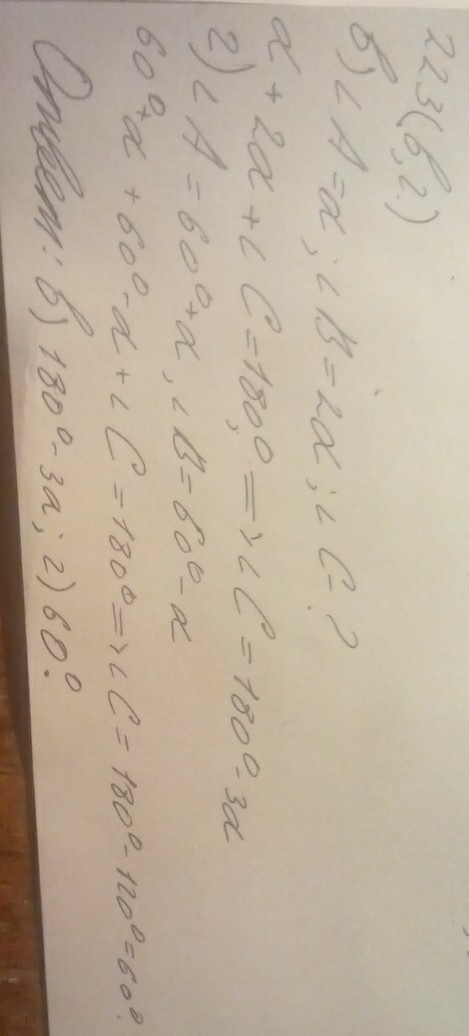 223(в,г.)
в) ∠A=α; ∠B=2α; ∠C-?
α+2α+∠C=180°, => ∠C=180°-3α
г) ∠A=60°+α, ∠B=60°-α
60°+α+60°-α+∠C=180°=>∠C=180°-120°=60°.
Ответ: в) 180°-3α; г) 60°.